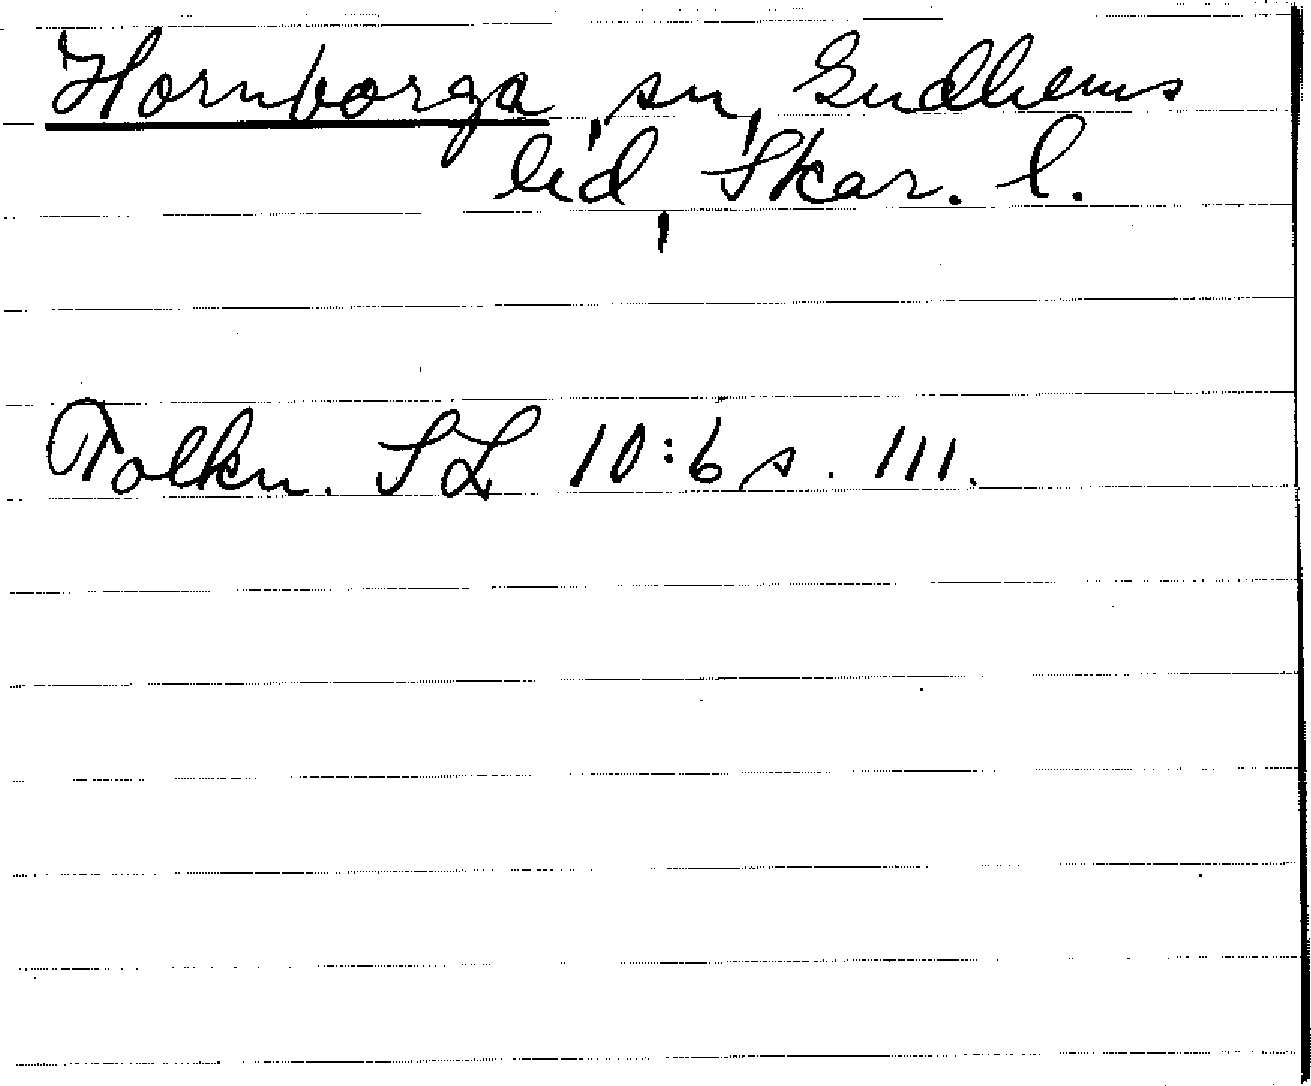 Hornborga, sn, Gudhems
hd, Skar. l.
Tolkn. SL 10:6 s. 111.